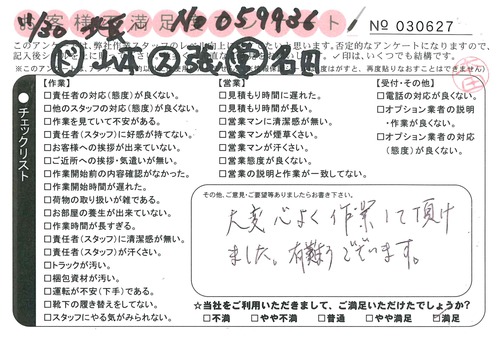 お客様満足度アンケート
No 059936
No 030627
11/30
このアンケートは、弊社作業スタッフのレベル向上に
思います。否定的なアンケートになりますので、
✓印は、いくつでも結構です。
再度貼りなおすことはできません)
チェックリスト
【作業】
□責任者の対応(態度)が良くない。
□他のスタッフの対応(態度)が良くない。
□作業を見ていて不安がある。
□責任者(スタッフ)に好感が持てない。
□お客様への挨拶が出来ていない。
□ご近所への挨拶・気遣いが無い。
□作業開始前の内容確認がなかった。
□作業開始時間が遅れた。
□荷物の取り扱いが雑である。
□お部屋の養生が出来ていない。
□作業時間が長すぎる。
□責任者(スタッフ)に清潔感が無い。
□責任者(スタッフ)が汗くさい。
□トラックが汚い。
□梱包資材が汚い。
□運転が不安(下手)である。
□靴下の履き替えをしてない。
□スタッフにやる気がみられない。
【営業】
□見積もり時間に遅れた。
□見積もり時間が長い。
□営業マンに清潔感が無い。
□営業マンが煙草くさい。
□営業マンが汗くさい。
□営業態度が良くない。
□営業の説明と作業が一致してない。
【受付・その他】
□電話の対応が良くない。
□オプション業者の説明
・作業が良くない。
□オプション業者の対応
(態度)が良くない。
その他、ご意見・ご要望等ありましたらお書き下さい。
大変心よく作業して頂け
ました。有難うございます。
☆当社をご利用いただきまして、ご満足いただけたでしょうか?
□不満 □やや不満 □普通 □やや満足 ☑満足